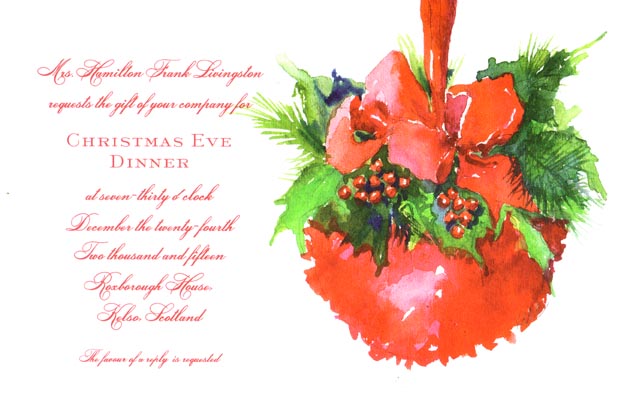 Mrs. Hamilton Frank Livingston
requests the gift of your company for
CHRISTMAS EVE
DINNER
at seven-thirty o'clock
December the twenty-fourth
Two thousand and fifteen
Roxborough House,
Kelso, Scotland
The favour of a reply is requested